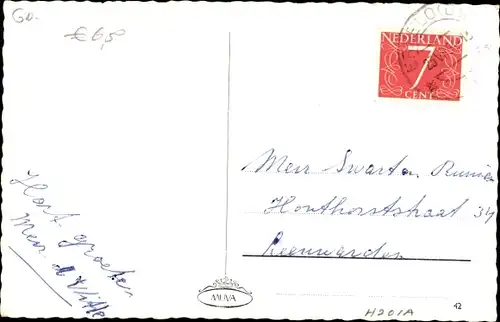 Gu.
€6,5
NEDERLAND
7
CENT
Meur Swart
Honthorststraat 34
Leeuwarden
Hart. groeten
Meur. d Witte
MUVA
42
H201A